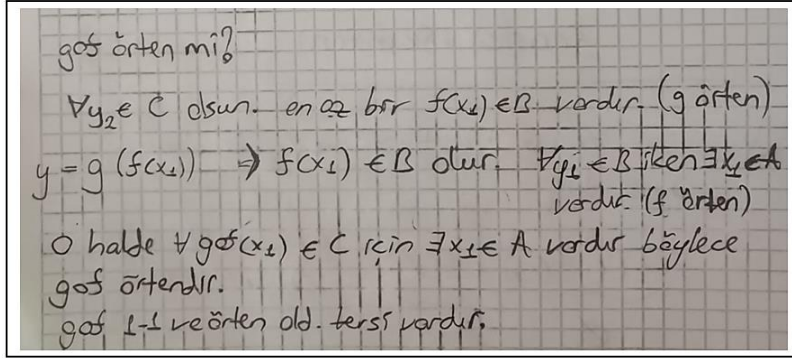 gof örten mi?
∀y₂ ∈ C olsun. en az bir f(x₁) ∈ B vardır. (g örten)
y = g(f(x₁)) ⇒ f(x₁) ∈ B olur. ∀y₁ ∈ B iken ∃x₁ ∈ A
vardır. (f örten)
O halde ∀ gof(x₁) ∈ C için ∃x₁ ∈ A vardır böylece
gof örtendir.
gof 1-1 ve örten old. tersi vardır.